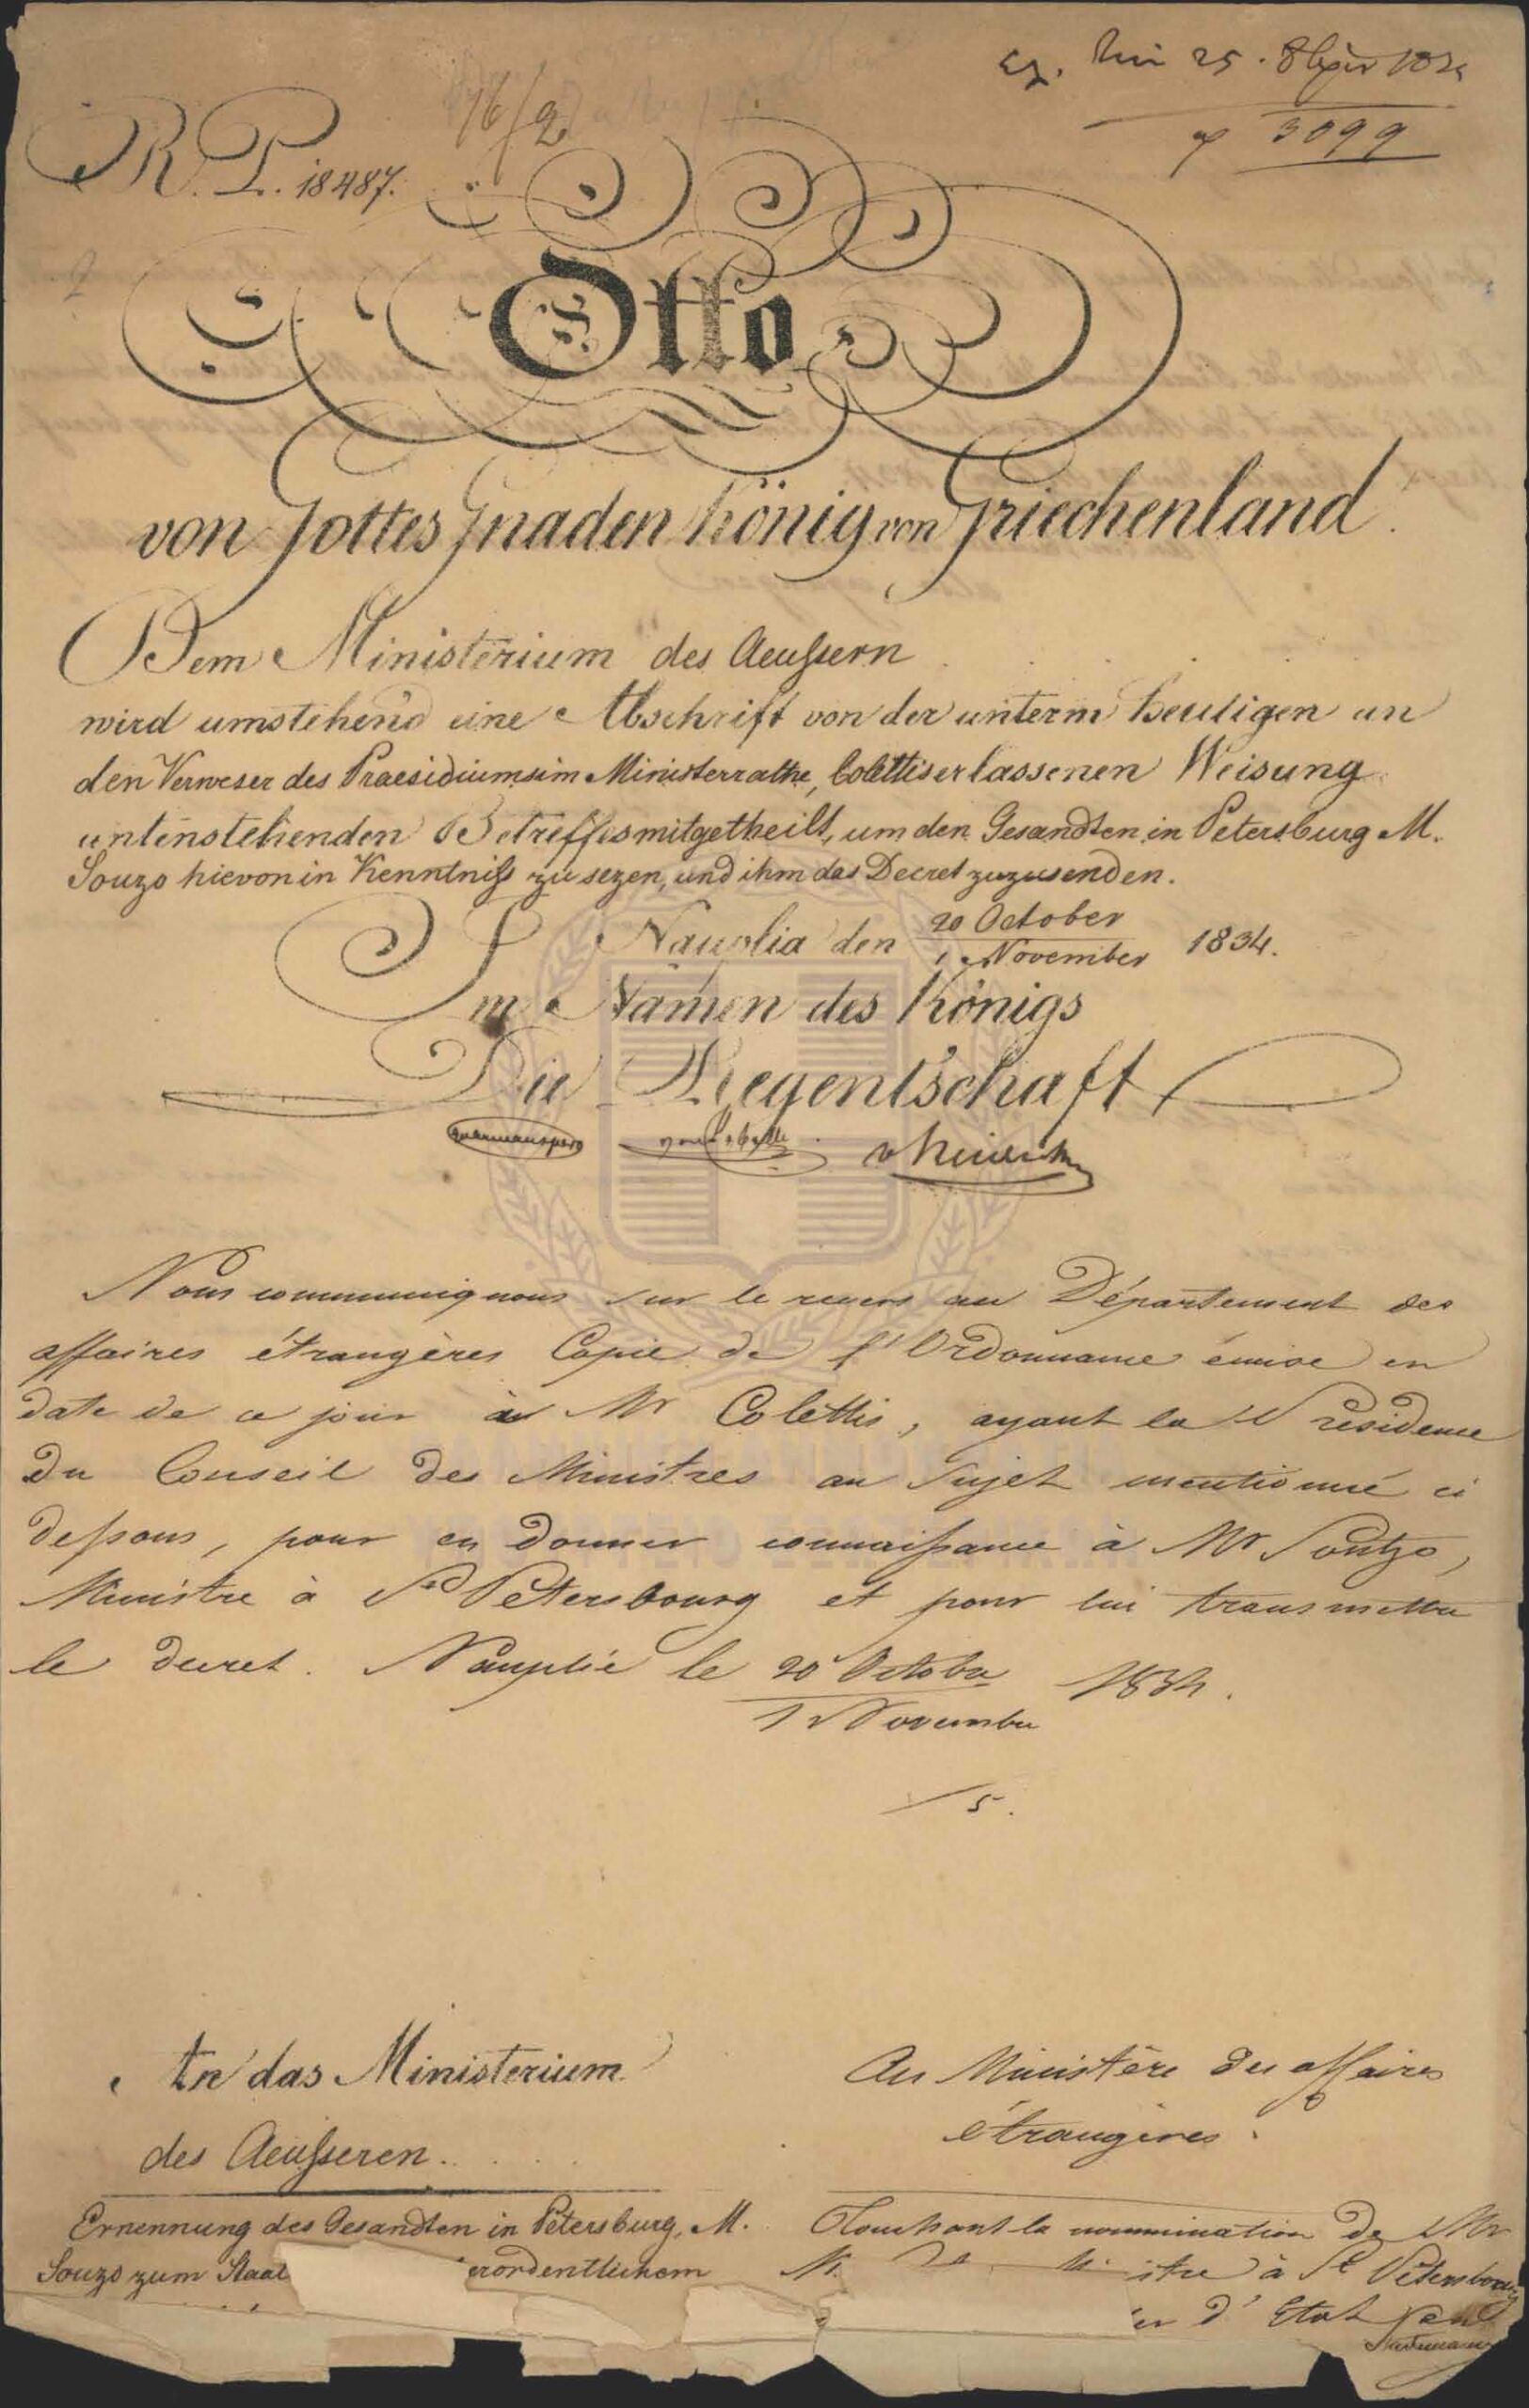 25. 8bre 1834
3099
16/2
R. P. 18487.
Otto
von Gottes Gnaden König von Griechenland.
Dem Ministerium des Aeußern
wird umstehend eine Abschrift von der unterm Heutigen an
den Verweser des Praesidiums im Ministerrathe, Colettis erlassenen Weisung
untenstehenden Betreffes mitgetheilt, um den Gesandten in Petersburg M.
Souzo hievon in Kenntniß zu sezen, und ihm das Decret zuzusenden.
Nauplia den 20 October / 1. November 1834.
Im Namen des Königs
Die Regentschaft
Nous communiquons sur le revers au Département des
affaires étrangères Copie de l'Ordonnance émise en
date de ce jour à Mr Colettis, ayant la Présidence
du Conseil des Ministres au Sujet mentionné ci
deßous, pour en donner connaißance à Mr Soutzo,
Ministre à St Petersbourg et pour lui transmettre
le decret. Nauplie le 20 Octobre / 1 Novembre 1834.
An das Ministerium
des Aeußeren.
Au Ministère des affaires
étrangères.
Ernennung des Gesandten in Petersburg, M.
Souzo zum Staat erordentlichem
Touchant la nommination de Mr
itre à St Petersbourg
er d'Etat